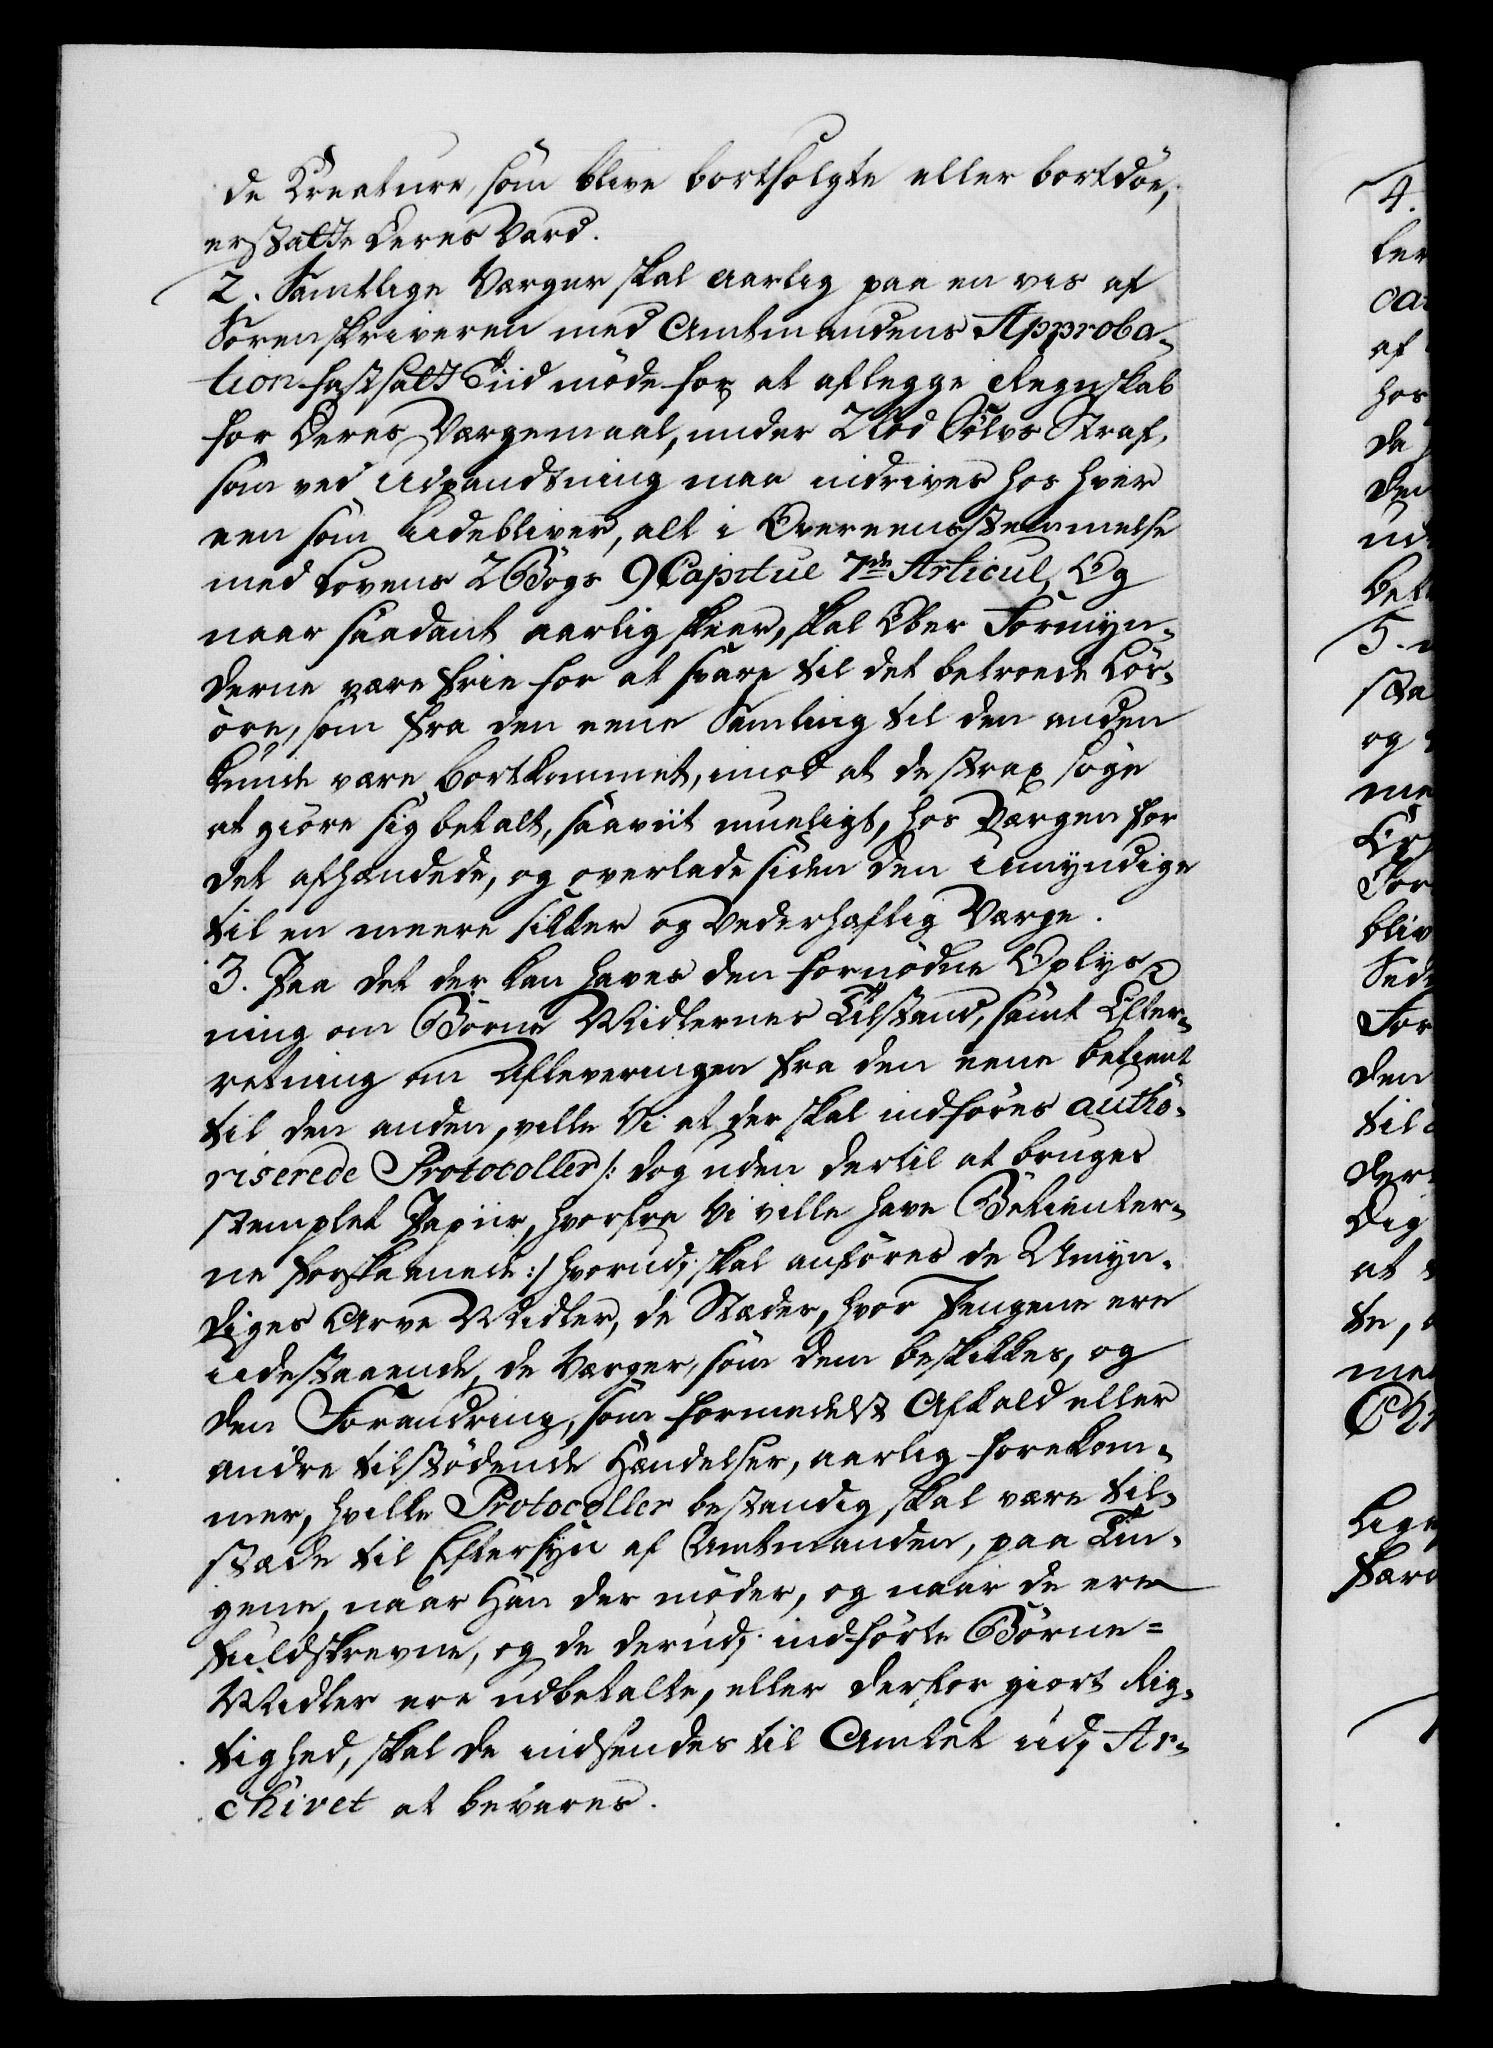 de Kreature, som blive bortsolgte eller bortdöe,
erstatte deres Værd.
2. Samtlige Værger skal aarlig paa en vis af
Sorenskriveren med Amtmandens Approba-
tion fastsatt Tiid möde for at aflegge Regnskab
for deres Værgemaal, under 2 Lod Sölvs Straf,
som ved Udpandtning maa inddrives hos hver
een som Udebliver, alt i Overeensstemmelse
med Lovens 2 Bogs 9 Capitul 7de Articul, Og
naar saadant aarlig skeer, skal Ober Formyn-
derne være frie for at svare til det betroede Lös-
öre, som fra den eene Samling til den anden
kunde være bortkommet, imod at de strax söge
at giöre sig betalt, saaviit mueligt, hos Værgen for
det afhændede, og overlade siden den Umyndige
til en meere sikker og Vederhæftig Værge.
3. Paa det der kan haves den fornödne Oplys-
ning om Börne Midlernes Tilstand, samt Efter-
retning om Afleveringen fra den eene betient
til den anden, ville Vi at der skal indföres autho-
riserede Protocoller /: dog uden dertil at bruges
stemplet Papiir, hvorfra Vi ville have Betienter-
ne forskaanede :/ hvorudj skal anföres de Umyn-
diges Arve Midler, de Stæder, hvor Pengene ere
udestaaende, de Værger, som dem beskikkes, og
den Forandring, som formedelst Affald eller
andre tilstödende Hændelser, aarlig forekom-
mer, hvilke Protocoller bestandig skal være til-
stæde til Eftersÿn af Amtmanden, paa Tin-
gene, naar Han der möder, og naar de ere
fuldskrevne, og de derudj indförte Börne=
Midler ere udbetalte, eller derfor giort Rig-
tighed, skal de indsendes til Amtet udj Ar-
chivet at bevares.